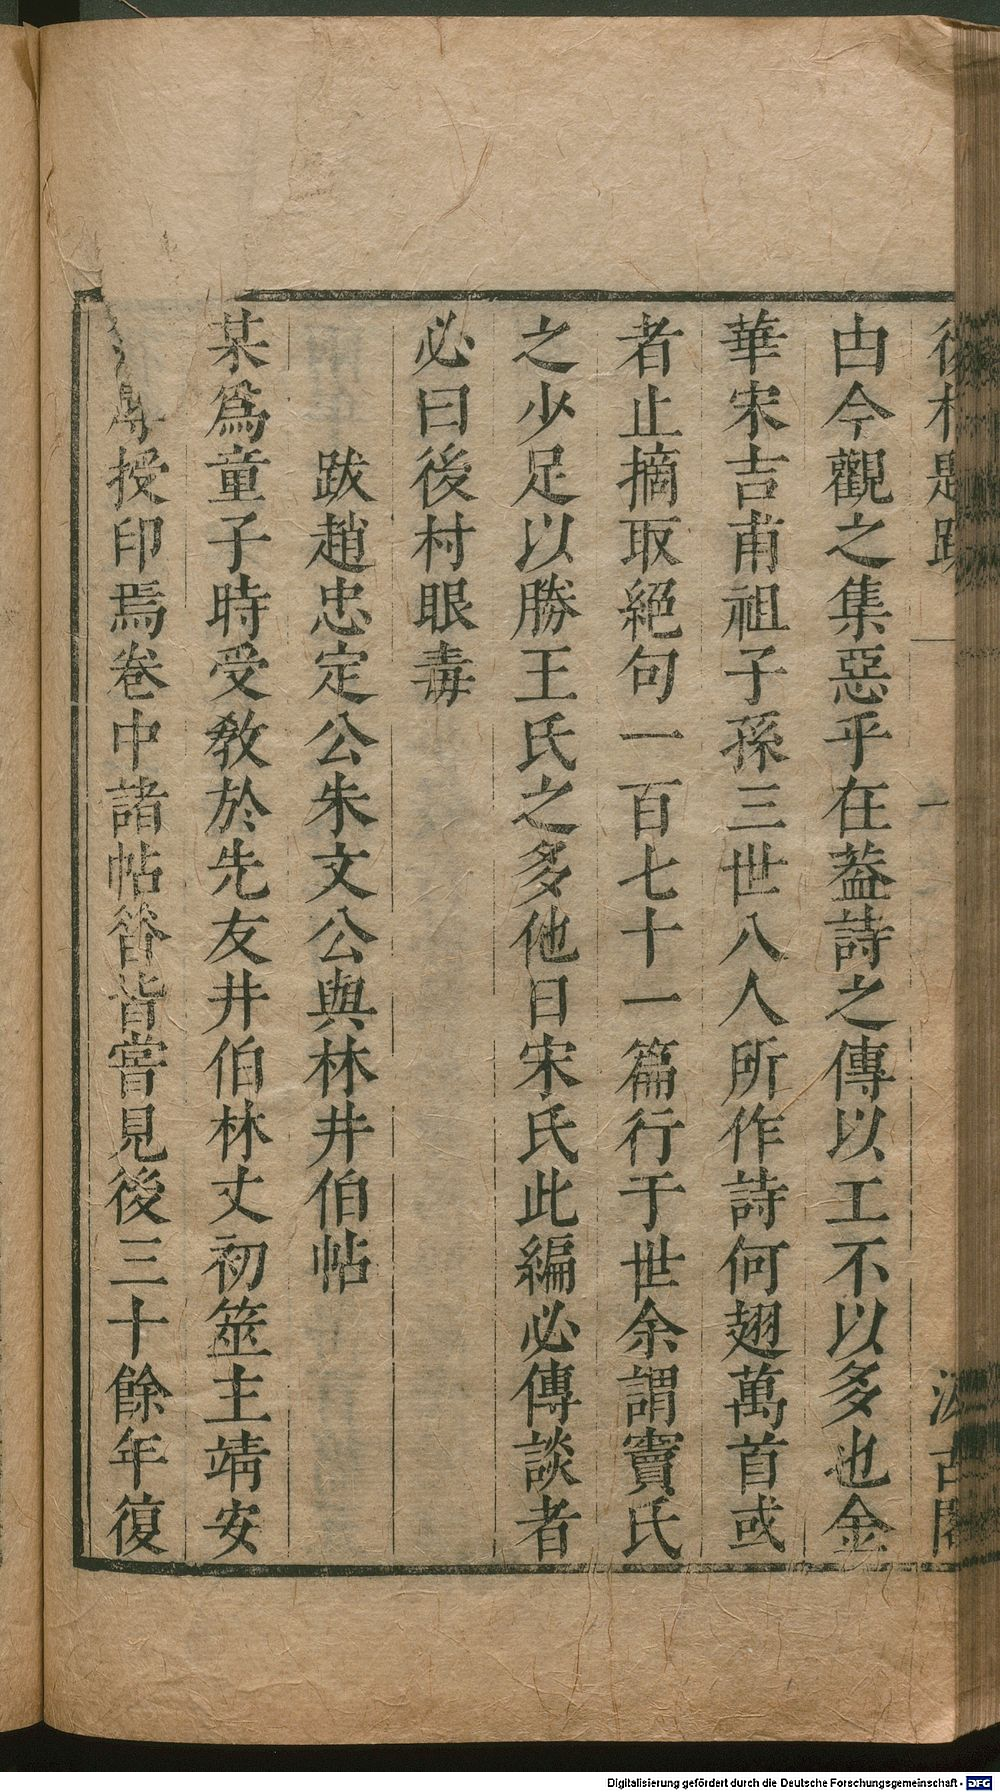 後村題跋 一 汲古閣
古今觀之集惡乎在葢詩之傳以工不以多也金
華宋吉甫祖子孫三世八人所作詩何翅萬首或
者止摘取絕句一百七十一篇行于世余謂竇氏
之少足以勝王氏之多他日宋氏此編必傳談者
必曰後村眼毒
跋趙忠定公朱文公與林井伯帖
某爲童子時受敎於先友井伯林丈初筮主靖安
授印焉卷中諸帖昝皆嘗見後三十餘年復
Digitalisierung gefördert durch die Deutsche Forschungsgemeinschaft - DFG